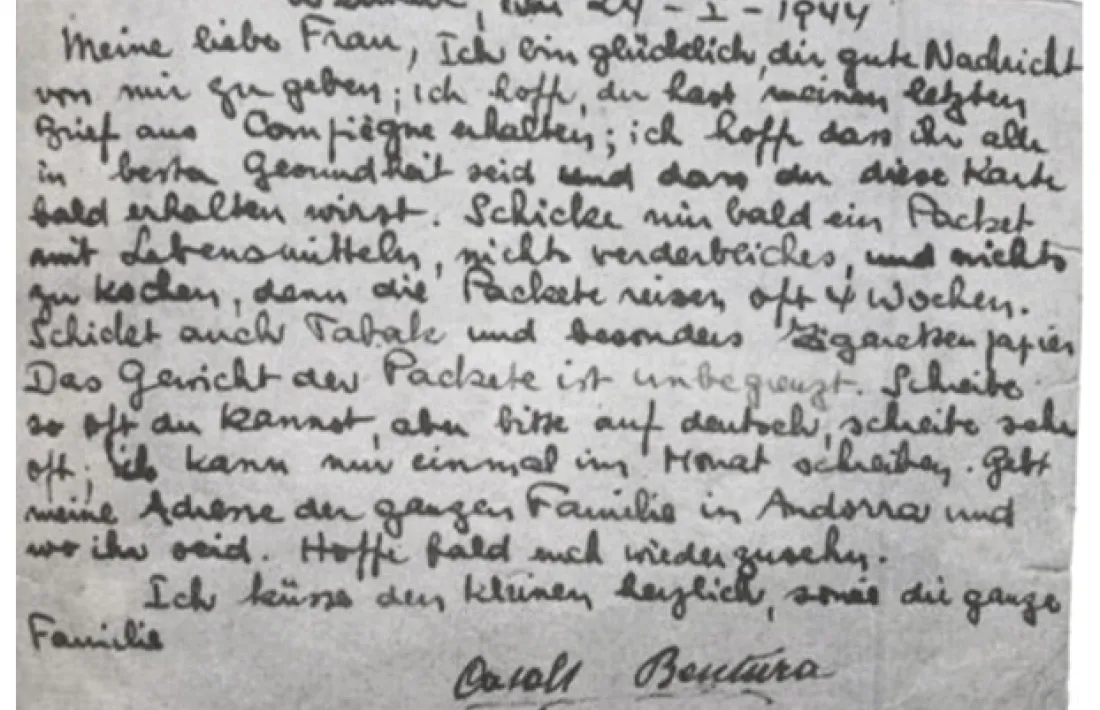 den 24 - I - 1944
Meine liebe Frau, Ich bin glücklich, dir gute Nachricht
von mir zu geben; ich hoffe, du hast meinen letzten
Brief aus Compiègne erhalten; ich hoffe dass ihr alle
in bester Gesundheit seid und dass du diese Karte
bald erhalten wirst. Schicke mir bald ein Packet
mit Lebensmitteln, nichts verderbliches, und nichts
zu kochen, denn die Packete reisen oft 4 Wochen.
Schicket auch Tabak und besonders Zigarettenpapier
Das Gewicht der Packete ist unbegrenzt. Schreibe
so oft du kannst, aber bitte auf deutsch, schreibe sehr
oft; ich kann nur einmal im Monat schreiben. Gebt
meine Adresse der ganzen Familie in Andorra und
wo ihr seid. Hoffe bald euch wiederzusehn.
Ich küsse den kleinen herzlich, sowie die ganze
Familie
Casals Bentura